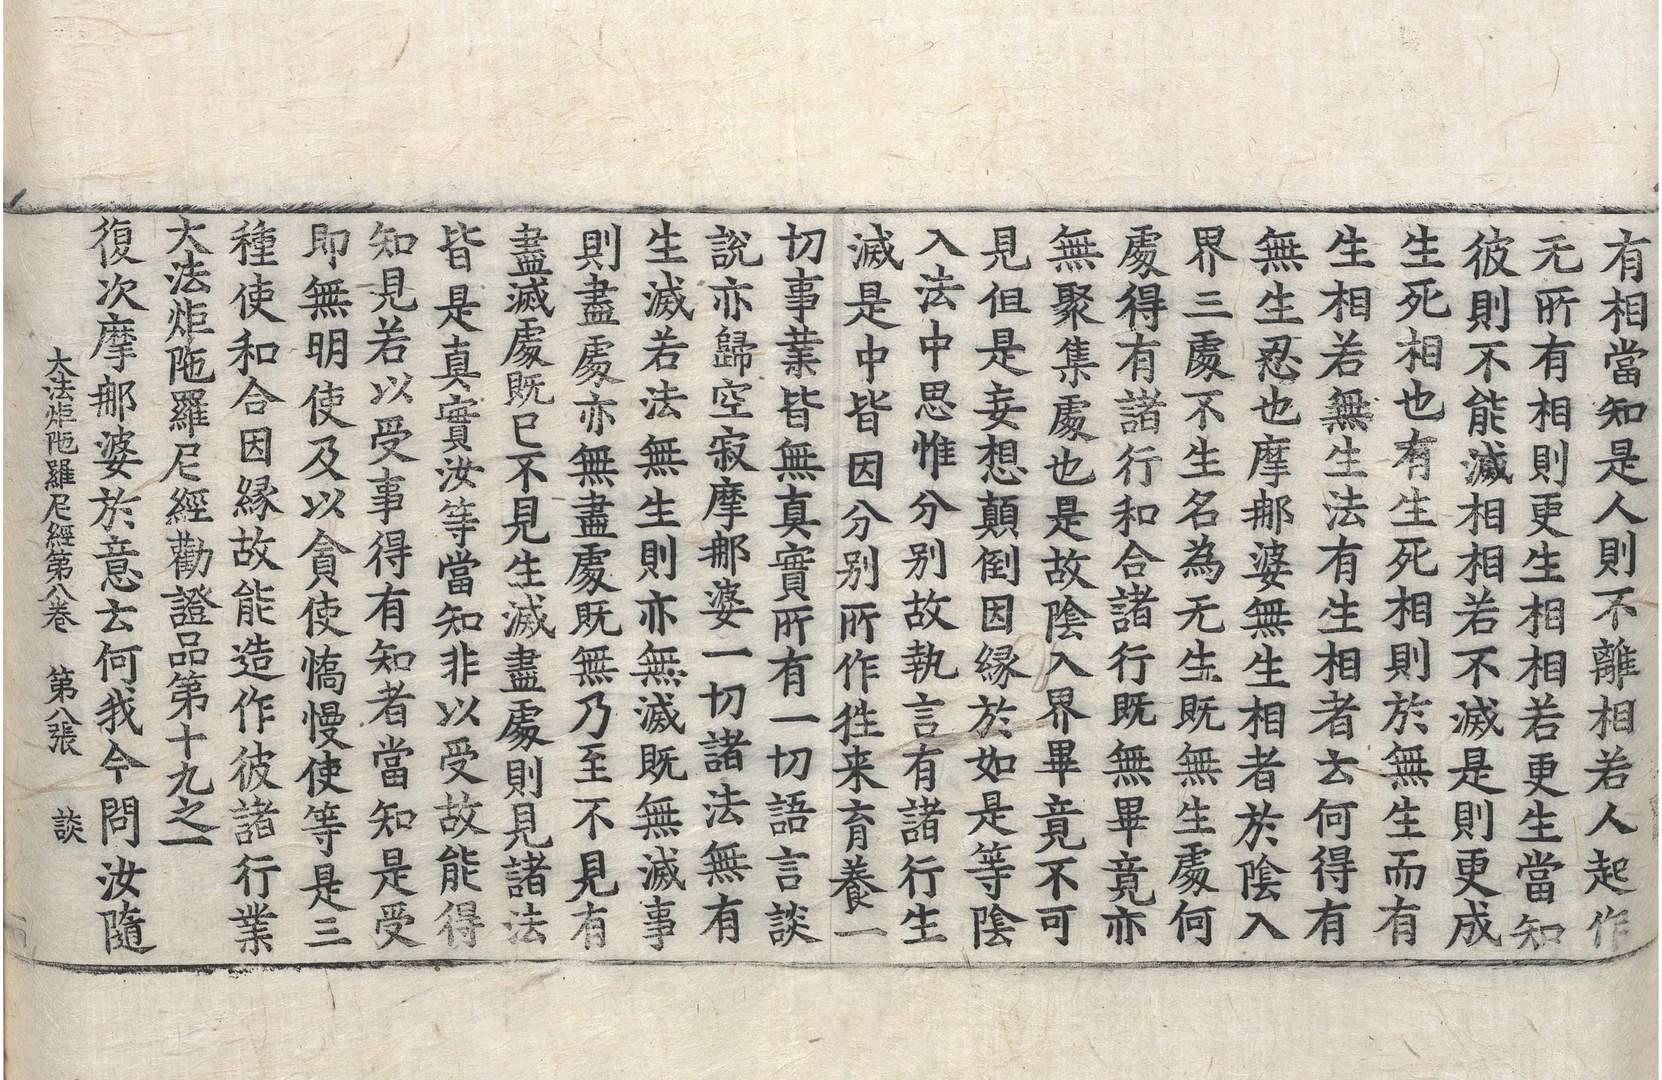 有相當知是人則不離相若人起作
无所有相則更生相相若更生當知
彼則不能滅相相若不滅是則更成
生死相也有生死相則於無生而有
生相若無生法有生相者去何得有
無生忍也摩那婆無生相者於陰入
界三處不生名為无生既無生處何
處得有諸行和合諸行既無畢竟亦
無聚集處也是故陰入界畢竟不可
見但是妄想顛倒因縁於如是等陰
入法中思惟分別故執言有諸行生
滅是中皆因分别所作往来育養一
切事業皆無真實所有一切語言談
說亦歸空寂摩那婆一切諸法無有
生滅若法無生則亦無滅既無滅事
則盡處亦無盡處既無乃至不見有
盡滅處既已不見生滅盡處則見諸法
皆是真實汝等當知非以受故能得
知見若以受事得有知者當知是受
即無明使及以貪使憍慢使等是三
種使和合因縁故能造作彼諸行業
大法炬陁羅尼經勸證品第十九之一
復次摩那婆於意去何我今問汝隨
大法炬陁羅尼經第八卷　第八張　談